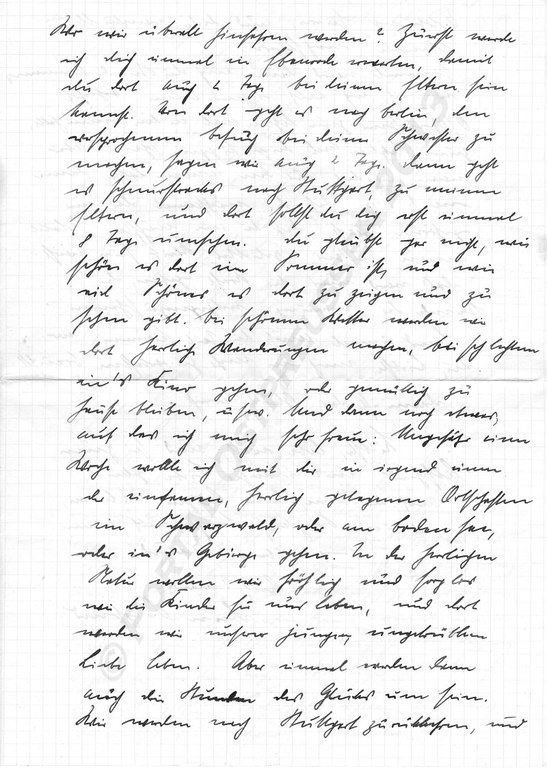 Wo wir überall hinfahren werden? Zuerst werde
ich dich einmal in erwarten, damit
du dort auch 2 Tage bei deinen Eltern sein
kannst. Von dort geht es nach Berlin, den
versprochenen Besuch bei deiner Schwester zu
machen, sagen wir auch 2 Tage. dann geht
es schnurstracks nach Stuttgart, zu meinen
Eltern, und dort sollst du dich erst einmal
8 Tage umsehen. du glaubst gar nicht, wie
schön es dort im Sommer ist, und wie
viel Schönes es dort zu zeigen und zu
sehen gibt. bei schönem Wetter werden wir
dort herrliche Wanderungen machen, bei schlechtem
in's Kino gehen, oder gemütlich zu
hause bleiben, usw. Und dann noch etwas,
auf das ich mich sehr freue: Ungefähr eine
Woche wollte ich mit dir in irgend einen
der einsamen, herrlich gelegenen Ortschaften
im Schwarzwald, oder am bodensee,
oder in's Gebirge gehen. In der herrlichen
Natur wollen wir fröhlich und sorglos
wie die Kinder für uns leben, und dort
werden wir unserer jungen, ungetrübten
Liebe leben. Aber einmal werden dann
auch die Stunden des Glücks um sein.
Wir werden nach Stuttgart zurückkehren, und
© PORTAL OST